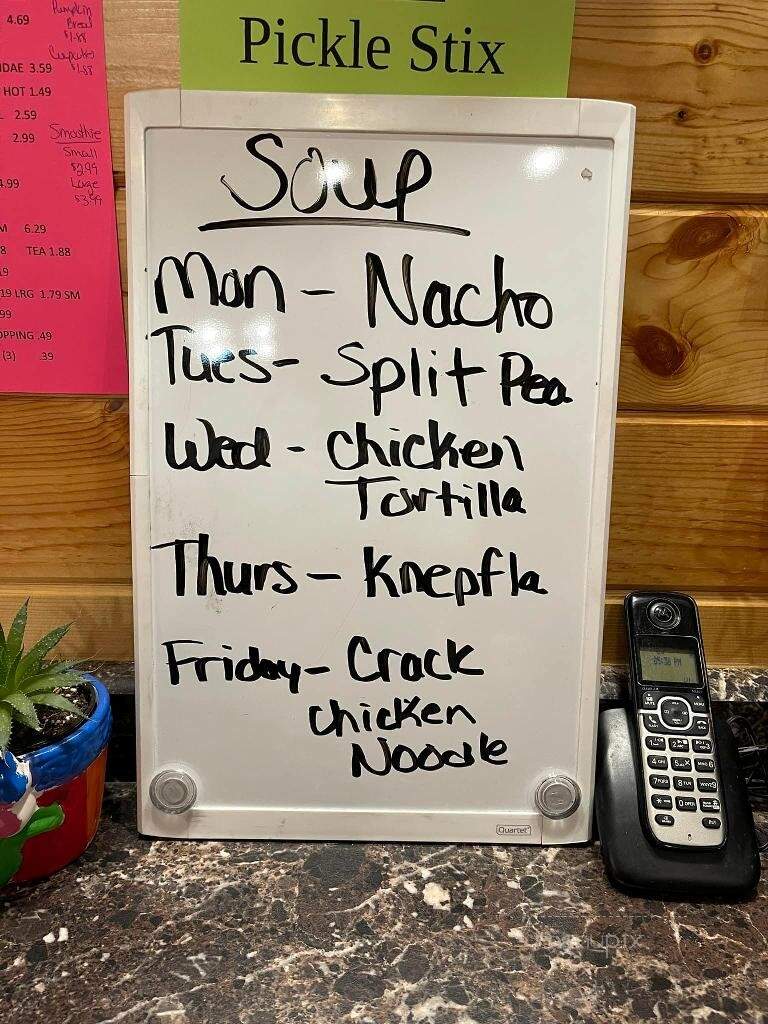 4.69
Pumpkin
Bread
$1.88
Cupcakes
$1.88
DAE 3.59
HOT 1.49
2.59
2.99
Smoothie
Small
$2.99
Large
$3.99
4.99
M 6.29
8 TEA 1.88
19 LRG 1.79 SM
99
OPPING .49
(3) .39
Pickle Stix
Soup
Mon - Nacho
Tues - Split Pea
Wed - Chicken
Tortilla
Thurs - Knepfla
Friday - Crack
Chicken
Noodle
Quartet